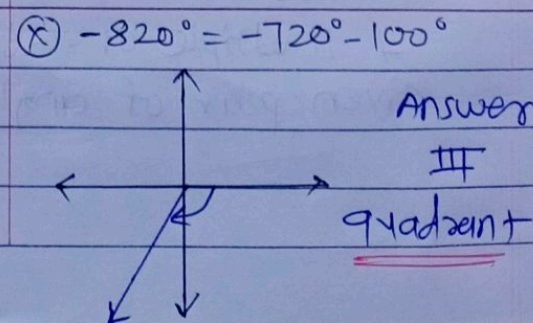 (x) -820° = -720° - 100°
Answer
III
quadrant